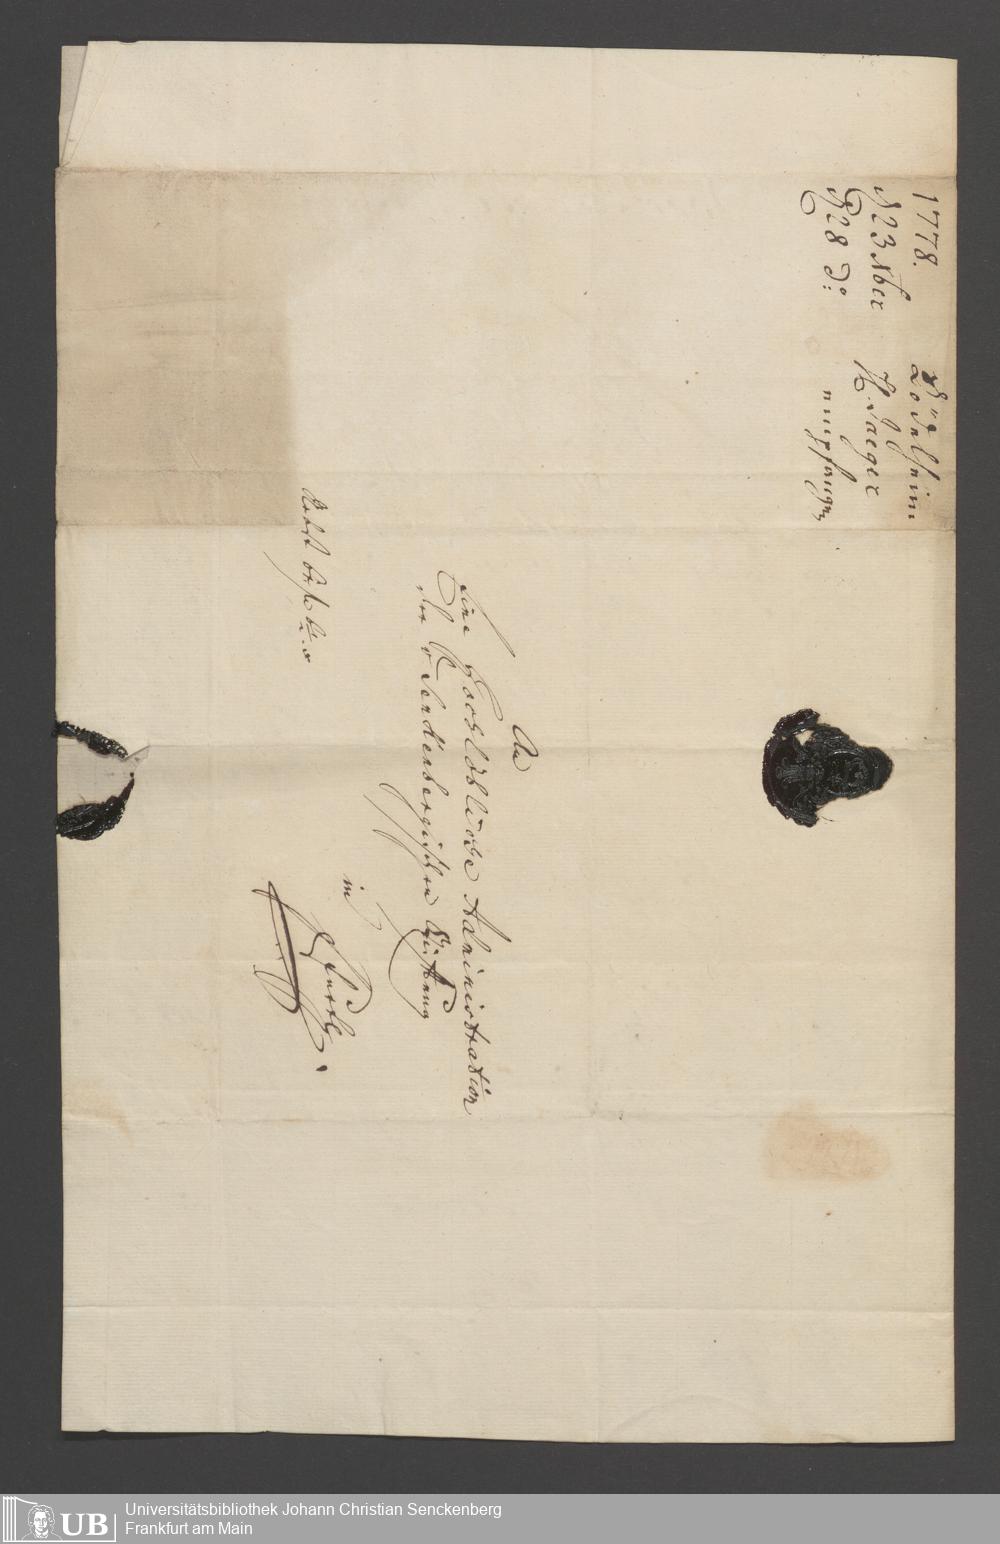 1778.
23 Nber
28 do:
Rödelheim
H. Jaeger
empfangen
An
Eine Hochlöbliche Administration
der Senckenbergischen Stiftung
in
Frfurth.
nebst
Universitätsbibliothek Johann Christian Senckenberg
Frankfurt am Main
UB